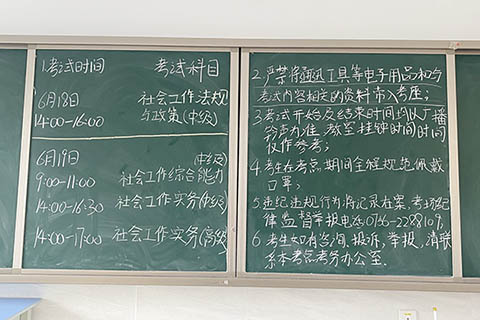 1.考试时间 考试科目
6月18日 社会工作法规
14:00-16:00 与政策(中级)
6月19日 (中级)
9:00-11:00 社会工作综合能力
14:00-16:30 社会工作实务(中级)
14:00-17:00 社会工作实务(高级)
2.严禁将通迅工具等电子用品和与
考试内容相关的资料带入考座;
3.考试开始及结束时间均以广播
铃声为准,教室挂钟时间时间
仅作参考;
4.考生在考点期间全程规范佩戴
口罩;
5.违纪违规行为将记录在案,考场纪
律监督举报电话:0766-2288109,
6.考生如有咨询、投诉、举报,请联
系本考点考务办公室.